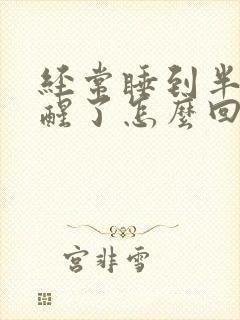 经常睡到半
醒了怎麼回
宫非雪